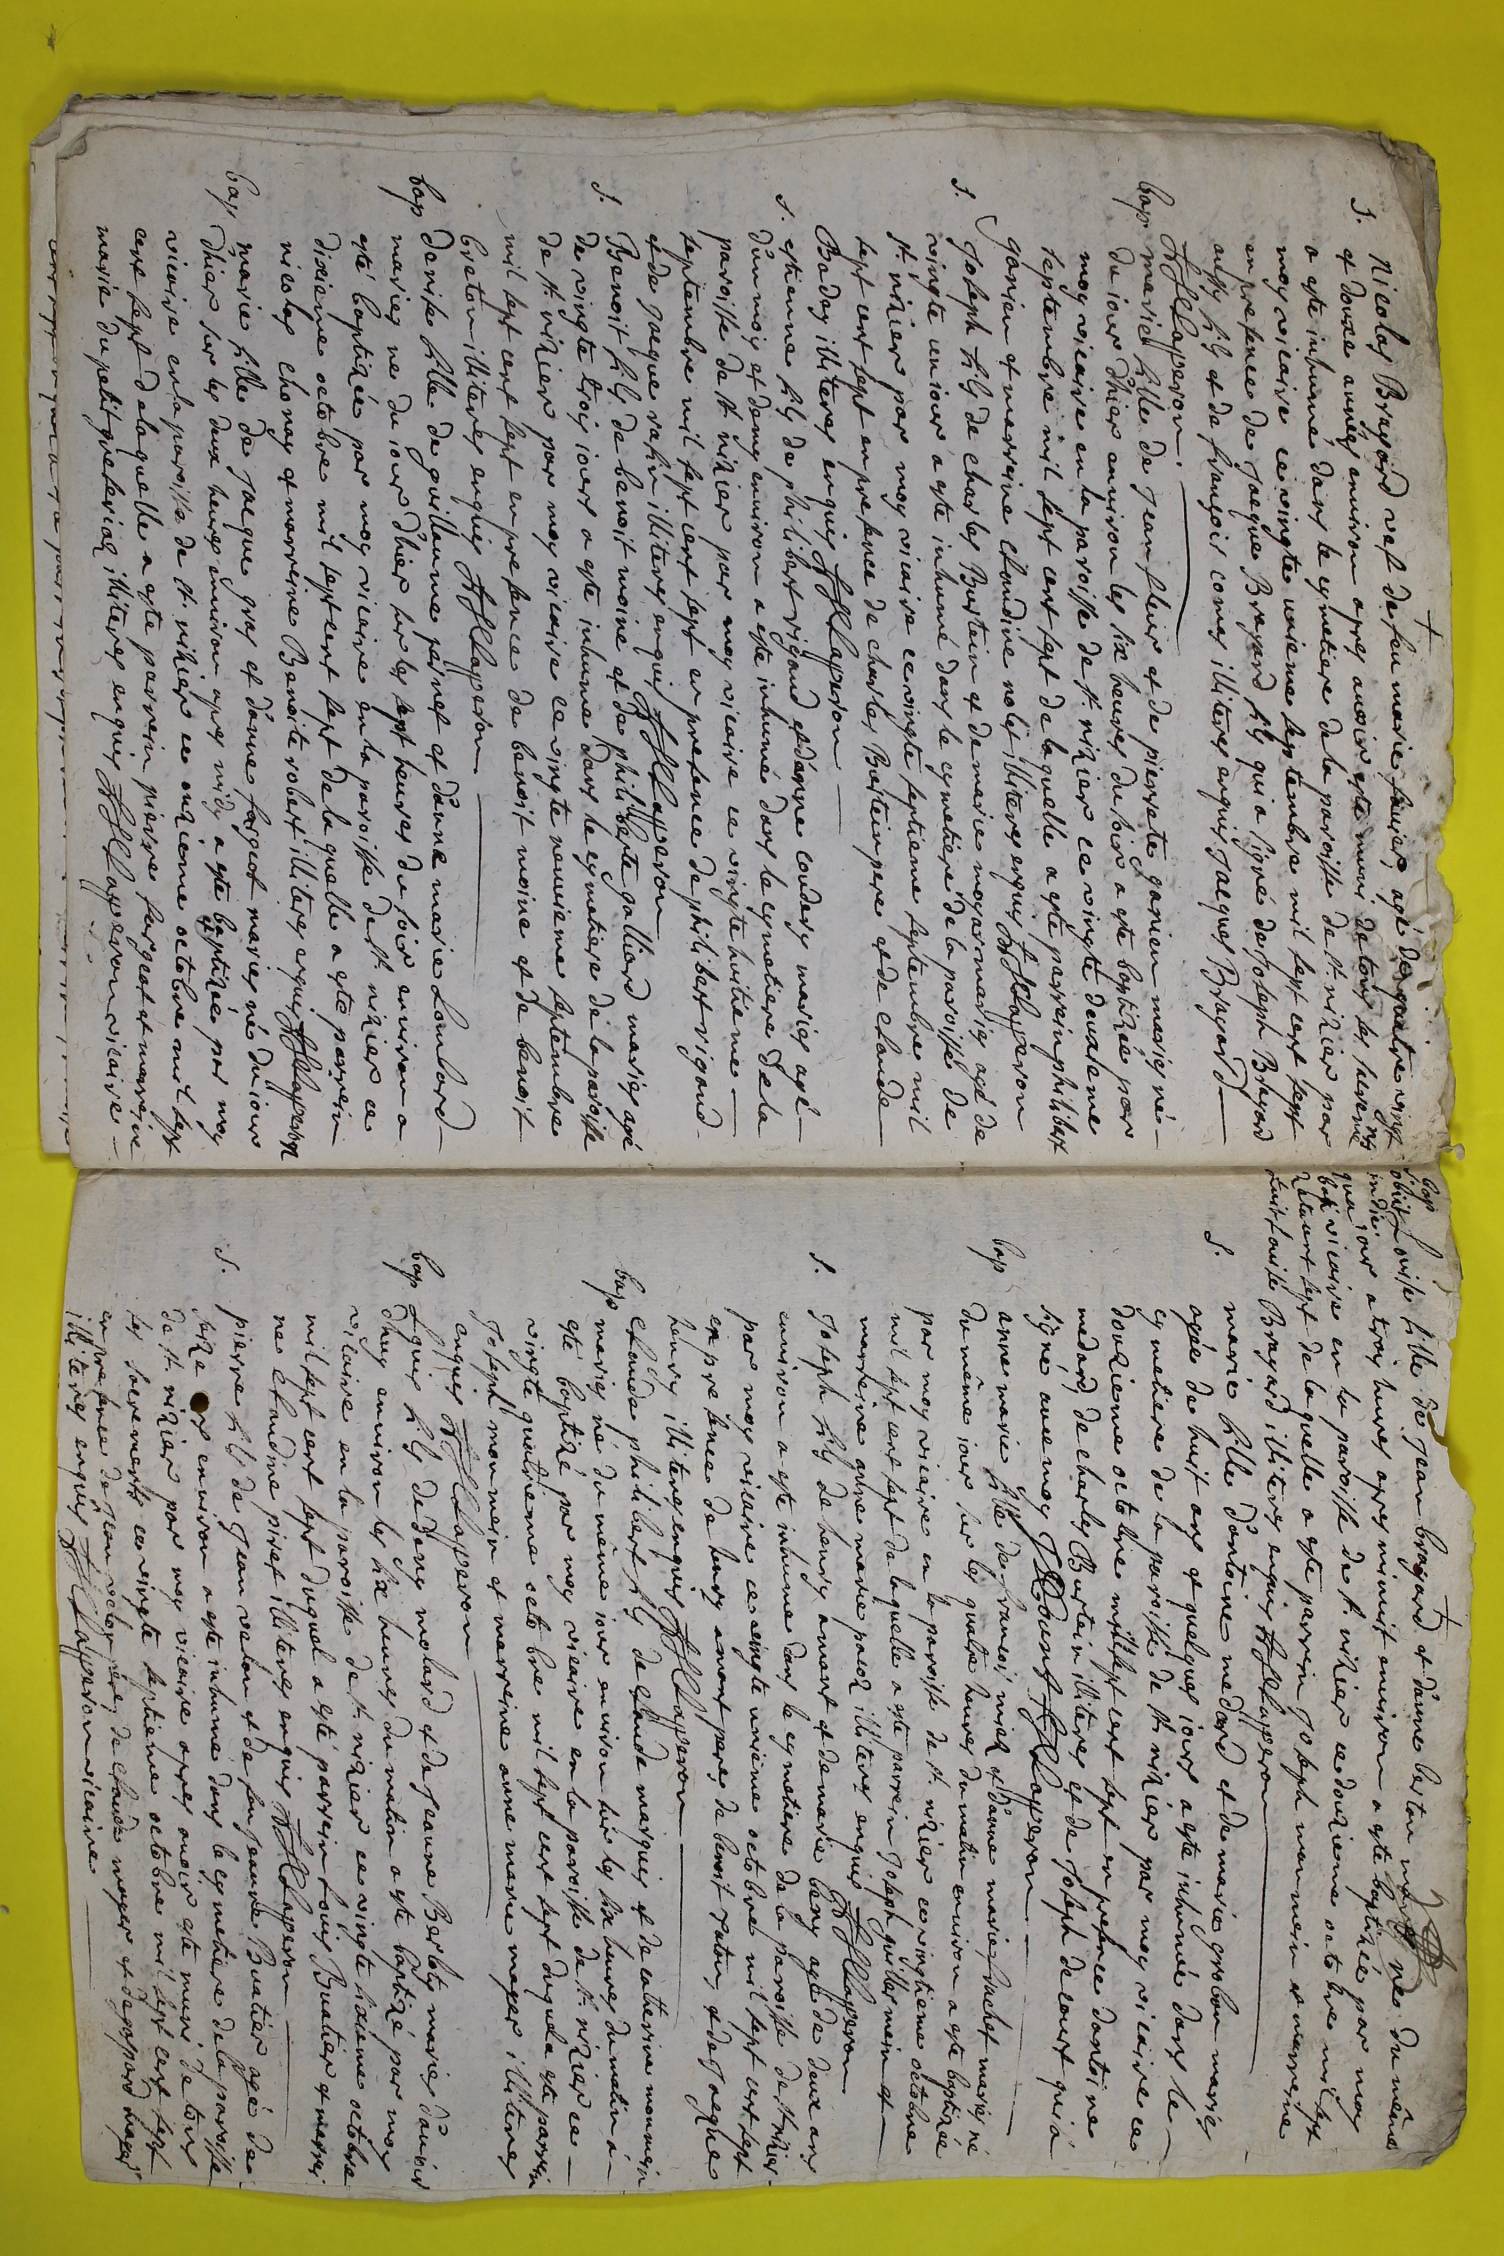 S. Nicolas Brayard vef de feu marie agé de quatre vingt
et douze années environ apres avoir esté muni de tous les sacremens
a este inhumé dans le cymetiere de la paroisse de st. nizier par
moy vicaire ce vingte unieme septembre mil sept cent sept
en presence de Jacque Brayard fils qui a signé de Joseph Brayard
aussy fils et de françois comes illiteres enquis Jacques Brayard
Clapeyron
bap marie fille de Jean fleur et de pierrete ganien mariés né
du jour d'hier environ les six heures du soir a este baptizée par
moy vicaire en la paroisse de st. nizier ce vingte deuxieme
septembre mil sept cent sept de laquelle a este parrein philibert
ganien et marreine claudine nolet illiteres enquis Clapeyron
S. Joseph fils de charles Burtein et de marie moyar mariés agé de
vingte un jour a este inhumé dans le cymetiere de la paroisse de
st. nizier par moy vicaire ce vingte septieme septembre mil
sept cent sept en presence de charles Burtein pere et de claude
Baday illiteres enquis Clapeyron
S. estienne fils de philibert rigaud et d'anne coudury mariés agé
d'un moy et demy environ a este inhumé dans le cymetiere de la
paroisse de st. nizier par moy vicaire ce vingte huitieme
septembre mil sept cent sept en presence de philibert rigaud
et de Jacque rasin illiteres enquis Clapeyron
S. Benoit fils de benoit moine et de philiberte galliard mariés agé
de vingte trois jours a este inhumé dans le cymetiere de la paroisse
de st. nizier par moy vicaire ce vingte neuvieme septembre
mil sept cent sept en presence de benoit moine et de benoit
breton illiteres enquis Clapeyron
bap denise fille de guillaume perinet et d'anne marie Lombard
mariés né du jour d'hier sur les sept heures du soir environ a
esté baptizée par moy vicaire en la paroisse de st. nizier ce
dixieme octobre mil sept cent sept de laquelle a este parrein
nicolas chonay et marreine Benoite robert illiteres enquis Clapeyron
bap marie fille de Jacque gras et d'anne fargeot mariés né du jour
d'hier sur les deux heures environ apres midy a este baptizée par moy
vicaire en la paroisse de st. nizier ce onzieme octobre mil sept
cent sept de laquelle a este parrein pierre fargeot et marreine
marie du petit illiteres enquis Clapeyron vicaire
bap Louise fille de Jean brayard et d'anne berton mariés née du même
S. obiit in die jour a trois heures apres minuit environ a este baptizée par moy
qua bap. vicaire en la paroisse de st. nizier ce douzieme octobre mil sept
cent sept de laquelle a este parrein Joseph monnein et marreine
Louise Brayard illiteres enquis Clapeyron
S. marie fille d'antoine medard et de marie grobon mariés
agée de huit ans et quelques jours a este inhumée dans le
cymetiere de la paroisse de st. nizier par moy vicaire ce
douzieme octobre mil sept cent sept en presence d'antoine
medard, de charles Burtein illiteres et de Joseph decourt qui a
signé avec moy Clapeyron
bap anne marie fille de francois niel et d'anne marie vachet mariés né
du même jour sur les quatre heures du matin environ a este baptizée
par moy vicaire en la paroisse de st. nizier ce vingtieme octobre
mil sept cent sept de laquelle a este parrein Joseph guillermein et
marreine anne marie illiteres enquis Clapeyron
S. Joseph fils de henry amont et de marie agé de deux ans
environ a este inhumé dans le cymetiere de la paroisse de st. nizier
par moy vicaire ce vingte unieme octobre mil sept cent sept
en presence de henry amont pere, de benoit et de Jacque
henry illiteres enquis Clapeyron
bap claude philibert fils de claude marquis et de catherine monnein
mariés né du même jour environ sur les six heures du matin a
este baptizé par moy vicaire en la paroisse de st. nizier ce
vingte quatrieme octobre mil sept cent sept duquel a este parrein
Joseph monnein et marreine anne marie moyer illiteres
enquis Clapeyron
bap Louis fils de denis molard et de Jeanne Berloty mariés
d'huy environ les six heures du matin a este baptizé par moy
vicaire en la paroisse de st. nizier ce vingte sixieme octobre
mil sept cent sept duquel a este parrein Louis Buatier et marrei
ne claudine piret illiteres enquis Clapeyron
S. pierre fils de Jean velon et de feu Jeanne Buatier agé de
seize ans environ a este inhumé dans le cymetiere de la paroisse
de st. nizier par moy vicaire apres avoir este muni de tous
les sacrements ce vingte septieme octobre mil sept cent sept
en presence de Jean velon pere, de claude moyer et de gaspard
illiteres enquis Clapeyron vicaire